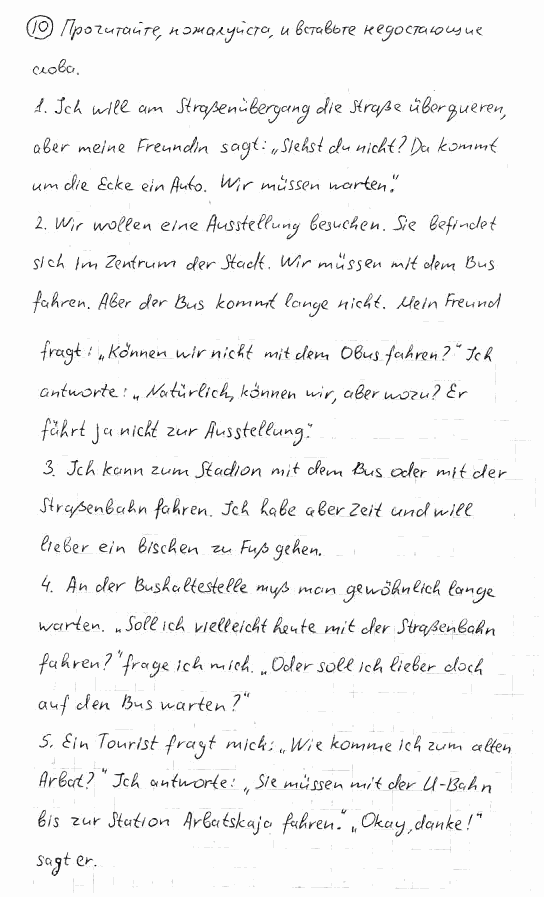 ⑩ Прочитайте, пожалуйста, и вставьте недостающие
слова.
1. Ich will am Straßenübergang die Straße überqueren,
aber meine Freundin sagt: „Siehst du nicht? Da kommt
um die Ecke ein Auto. Wir müssen warten."
2. Wir wollen eine Ausstellung besuchen. Sie befindet
sich im Zentrum der Stadt. Wir müssen mit dem Bus
fahren. Aber der Bus kommt lange nicht. Mein Freund
fragt: „Können wir nicht mit dem Obus fahren?" Ich
antworte: „Natürlich, können wir, aber wozu? Er
fährt ja nicht zur Ausstellung."
3. Ich kann zum Stadion mit dem Bus oder mit der
Straßenbahn fahren. Ich habe aber Zeit und will
lieber ein bischen zu Fuß gehen.
4. An der Bushaltestelle muß man gewöhnlich lange
warten. „Soll ich vielleicht heute mit der Straßenbahn
fahren?" frage ich mich. „Oder soll ich lieber doch
auf den Bus warten?"
5. Ein Tourist fragt mich: „Wie komme ich zum alten
Arbat?" Ich antworte: „Sie müssen mit der U-Bahn
bis zur Station Arbatskaja fahren." „Okay, danke!"
sagt er.